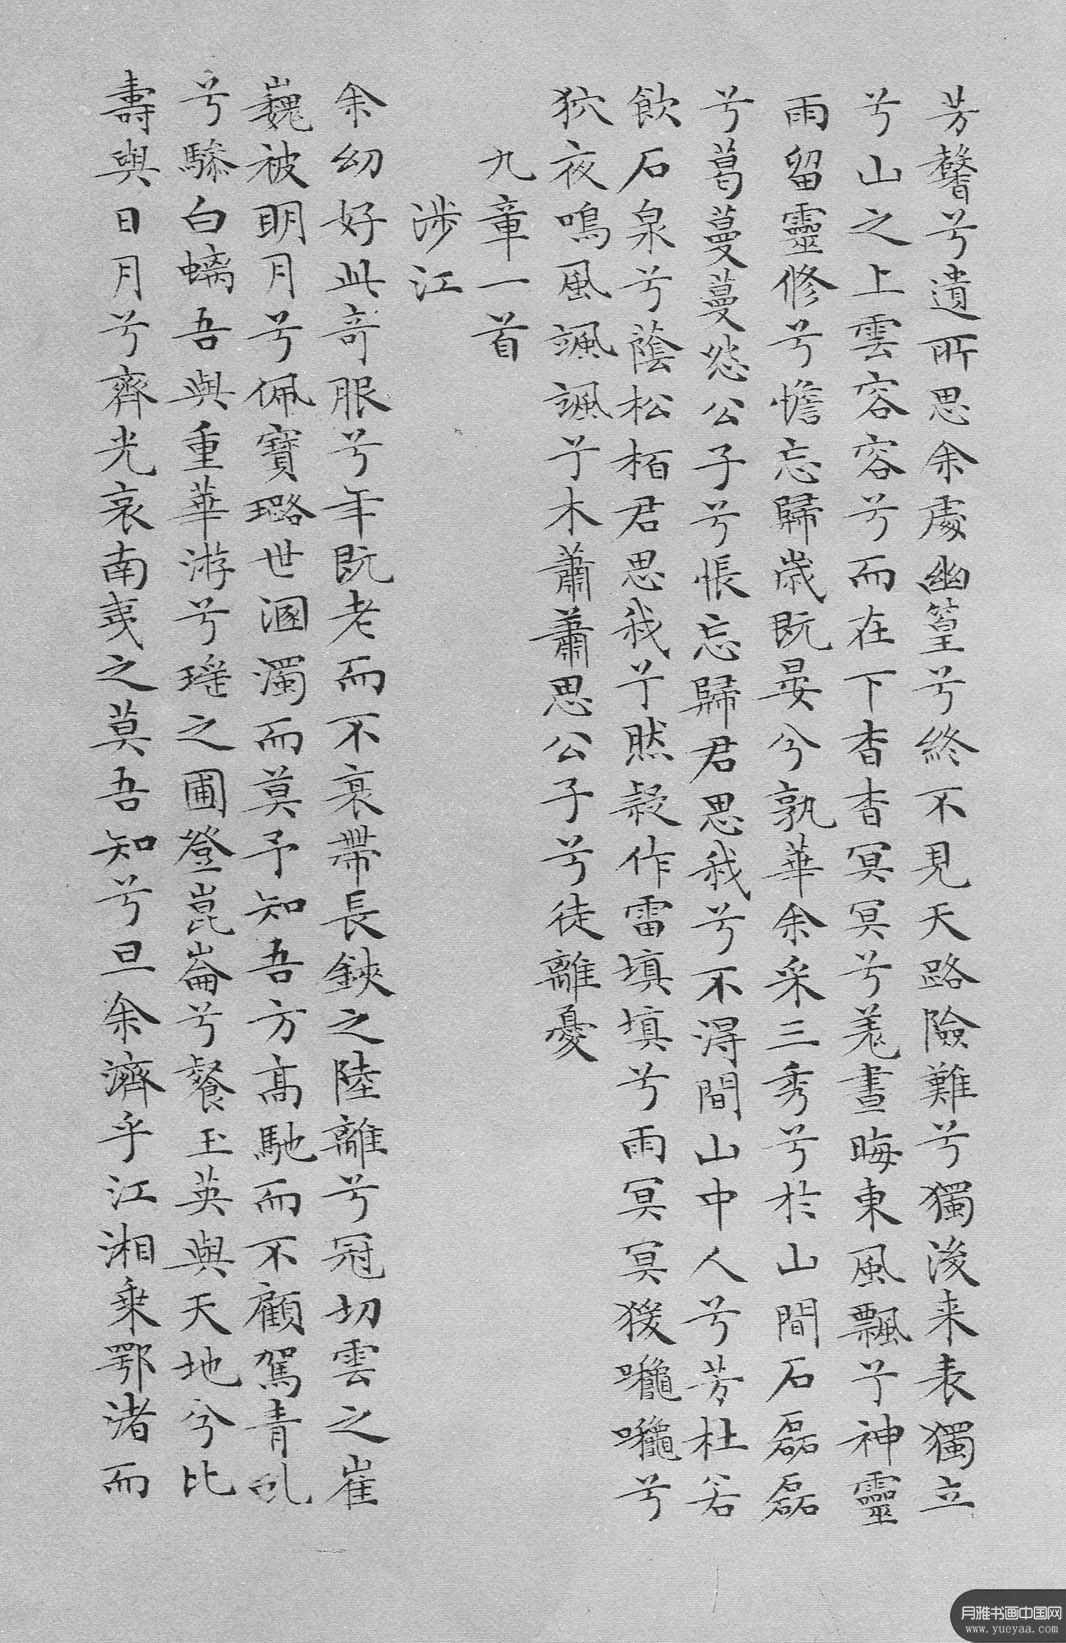 芳馨兮遺所思余處幽篁兮終不見天路險難兮獨後来表獨立
兮山之上雲容容兮而在下杳杳冥冥兮羌晝晦東風飄兮神靈
雨留靈修兮憺忘歸歲既晏兮孰華余采三秀兮於山間石磊磊
兮葛蔓蔓怨公子兮悵忘歸君思我兮不得間山中人兮芳杜若
飲石泉兮蔭松栢君思我兮然疑作雷填填兮雨冥冥猨啾啾兮
狖夜鳴風颯颯兮木蕭蕭思公子兮徒離憂
九章一首
涉江
余幼好此奇服兮年既老而不衰帶長鋏之陸離兮冠切雲之崔
巍被明月兮佩寶璐世溷濁而莫予知吾方高馳而不顧駕青虬
兮驂白螭吾與重華游兮瑤之圃登崑崙兮餐玉英與天地兮比
壽與日月兮齊光哀南夷之莫吾知兮旦余濟乎江湘乘鄂渚而
月雅书画中国网
www.yueyaa.com